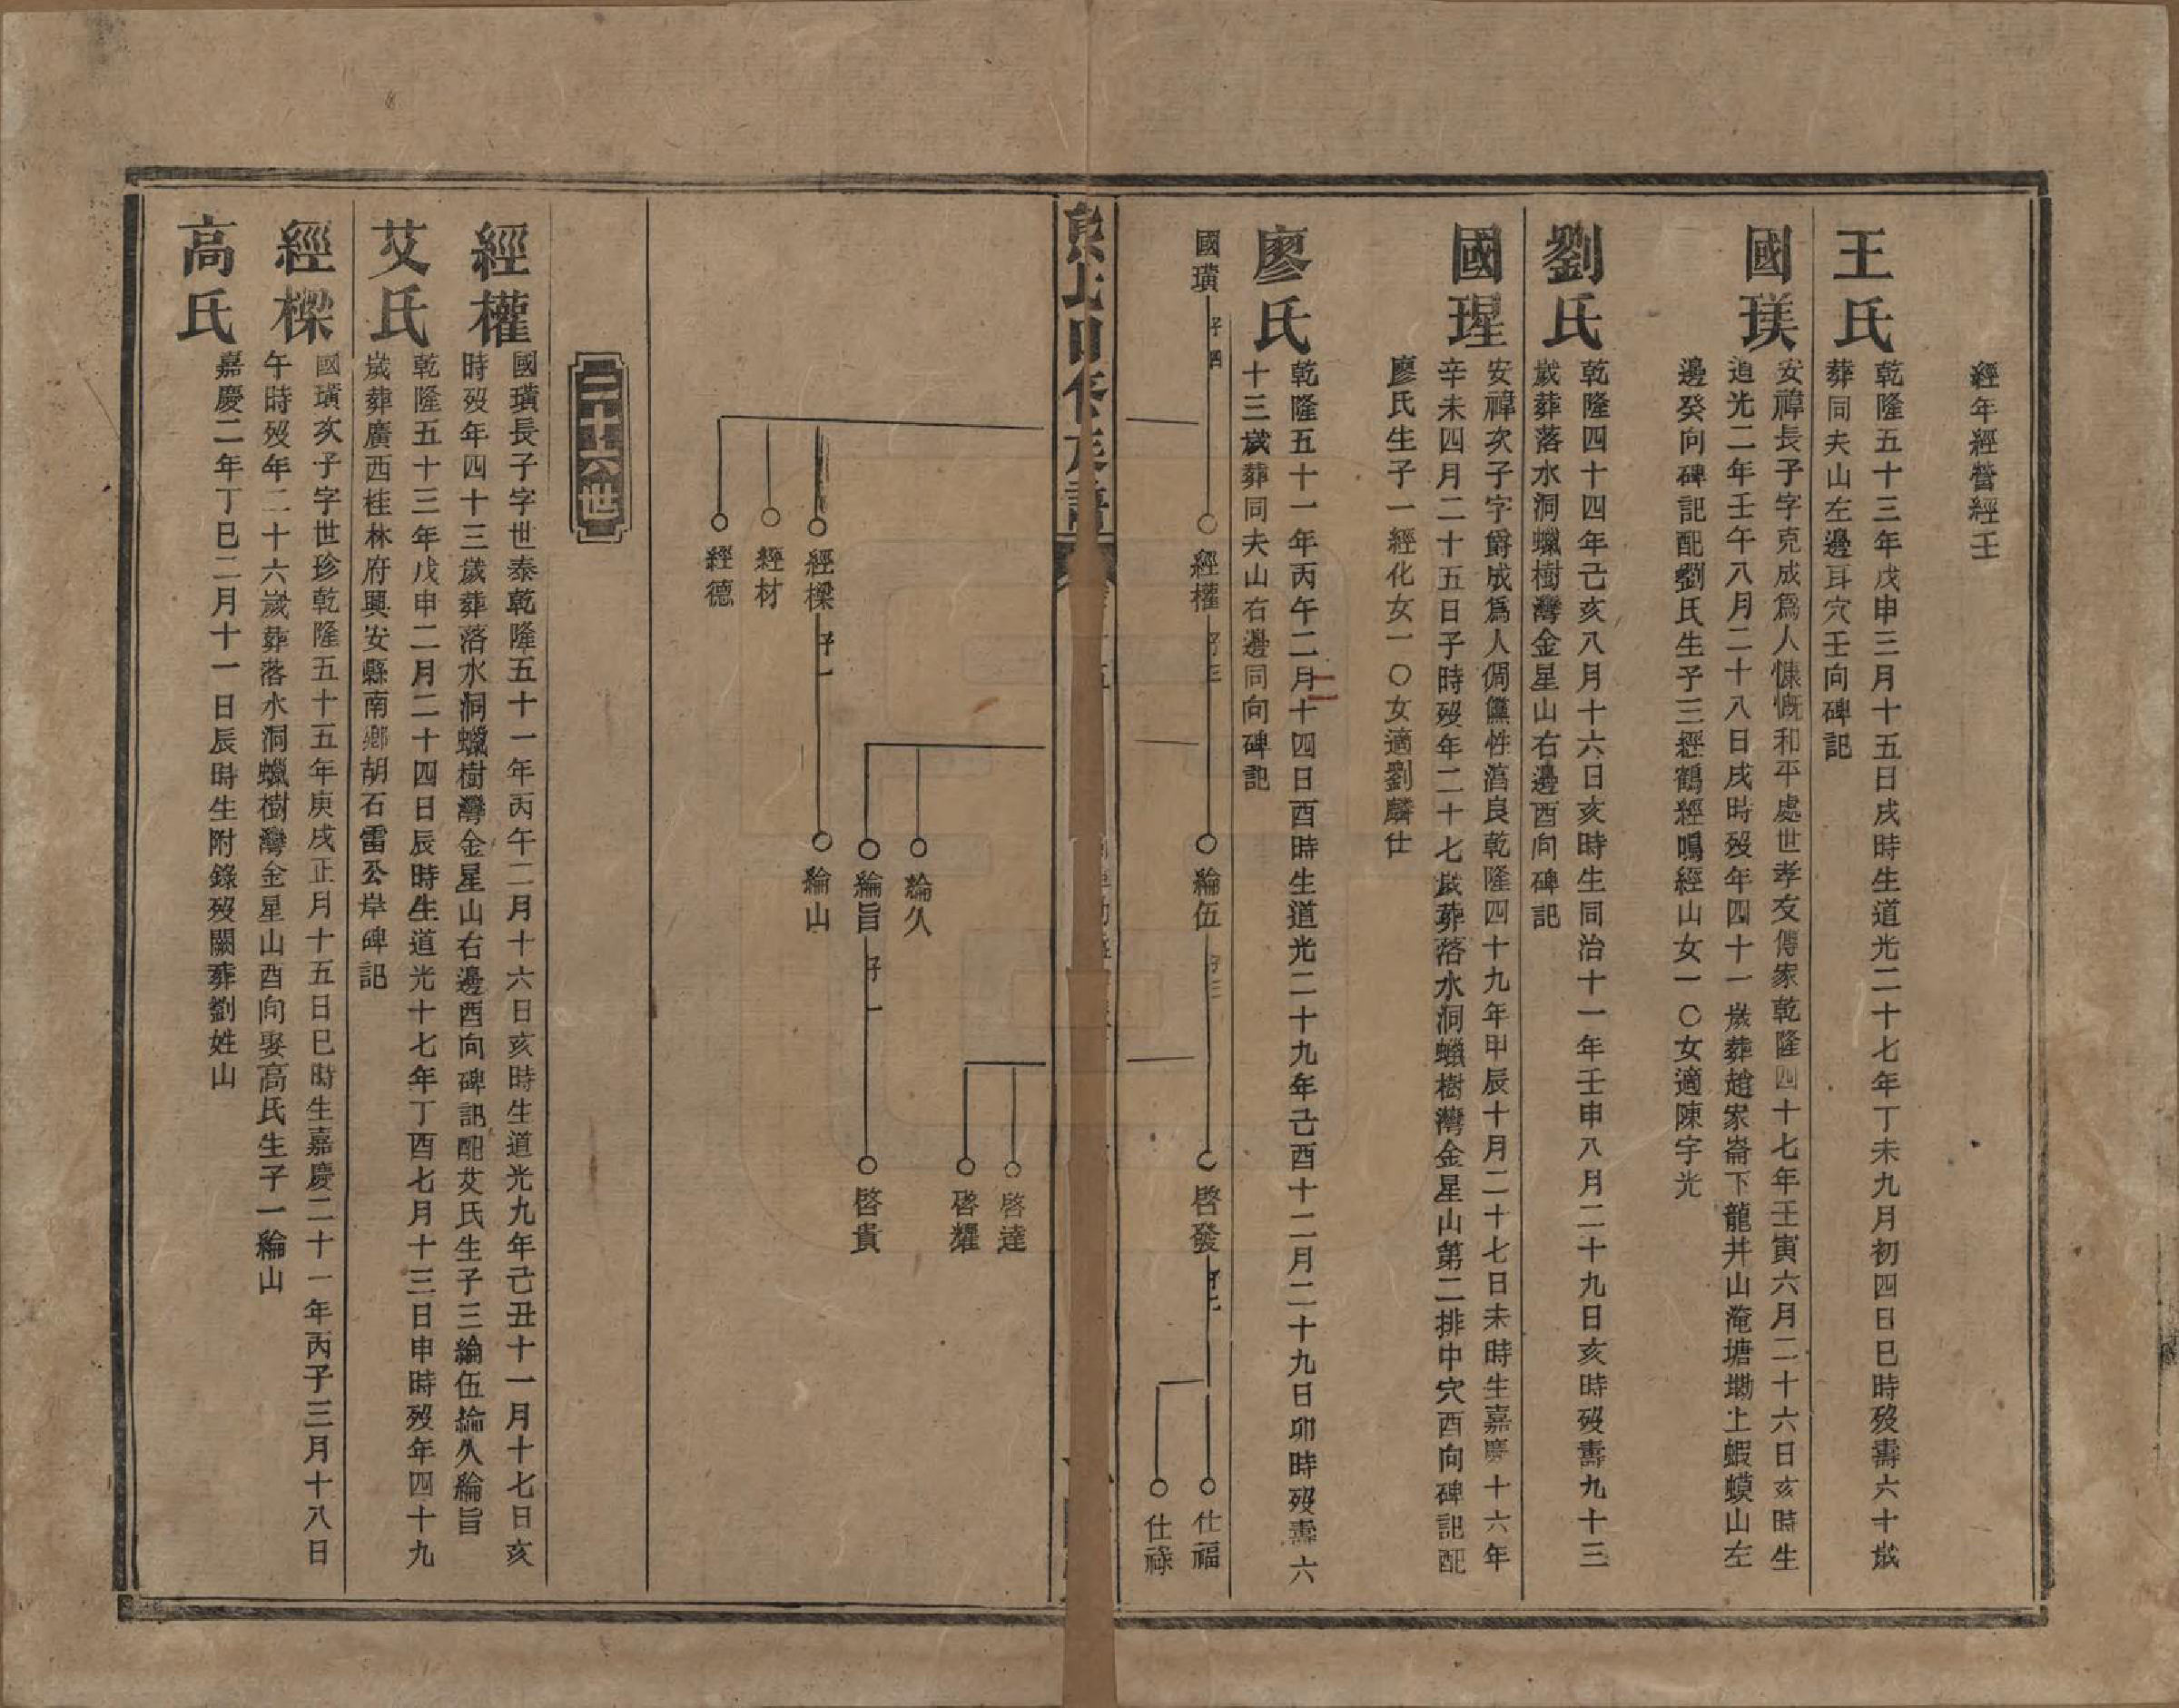 經年經營經王
王氏
乾隆五十三年戊申三月十五日戌時生道光二十七年丁未九月初四日巳時歿壽六十歲
葬同夫山左邊耳穴壬向碑記
國瑛
安禕長子字克成爲人慷慨和平處世孝友傳家乾隆四十七年壬寅六月二十六日亥時生
道光二年壬午八月二十八日戌時歿年四十一歲葬趙家崙下龍井山淹塘塝上蝦蟆山左
邊癸向碑記配劉氏生子三經鶴經鳴經山女一〇女適陳宇光
劉氏
乾隆四十四年己亥八月十六日亥時生同治十一年壬申八月二十九日亥時歿壽九十三
歲葬落水洞蠟樹灣金星山右邊酉向碑記
國瑆
安禕次子字爵成爲人倜儻性溫良乾隆四十九年甲辰十月二十七日未時生嘉慶十六年
辛未四月二十五日子時歿年二十七歲葬落水洞蠟樹灣金星山第二排中穴酉向碑記配
廖氏生子一經化女一〇女適劉麟仕
廖氏
乾隆五十一年丙午二月十四日酉時生道光二十九年己酉十二月二十九日卯時歿壽六
十三歲葬同夫山右邊同向碑記
國璜 子四
經權 子三
綸伍 子三
啓發 子七
仕福
仕祿
熊氏四修族譜
啓達
啓耀
綸久
綸旨 子一
啓貴
經樑 子一
綸山
經材
經德
二十六世
經權
國璜長子字世泰乾隆五十一年丙午二月十六日亥時生道光九年己丑十一月十七日亥
時歿年四十三歲葬落水洞蠟樹灣金星山右邊酉向碑記配艾氏生子三綸伍綸久綸旨
艾氏
乾隆五十三年戊申二月二十四日辰時生道光十七年丁酉七月十三日申時歿年四十九
歲葬廣西桂林府興安縣南鄉胡石雷公岸碑記
經樑
國璜次子字世珍乾隆五十五年庚戌正月十五日巳時生嘉慶二十一年丙子三月十八日
午時歿年二十六歲葬落水洞蠟樹灣金星山酉向娶高氏生子一綸山
高氏
嘉慶二年丁巳二月十一日辰時生附錄歿闕葬劉姓山